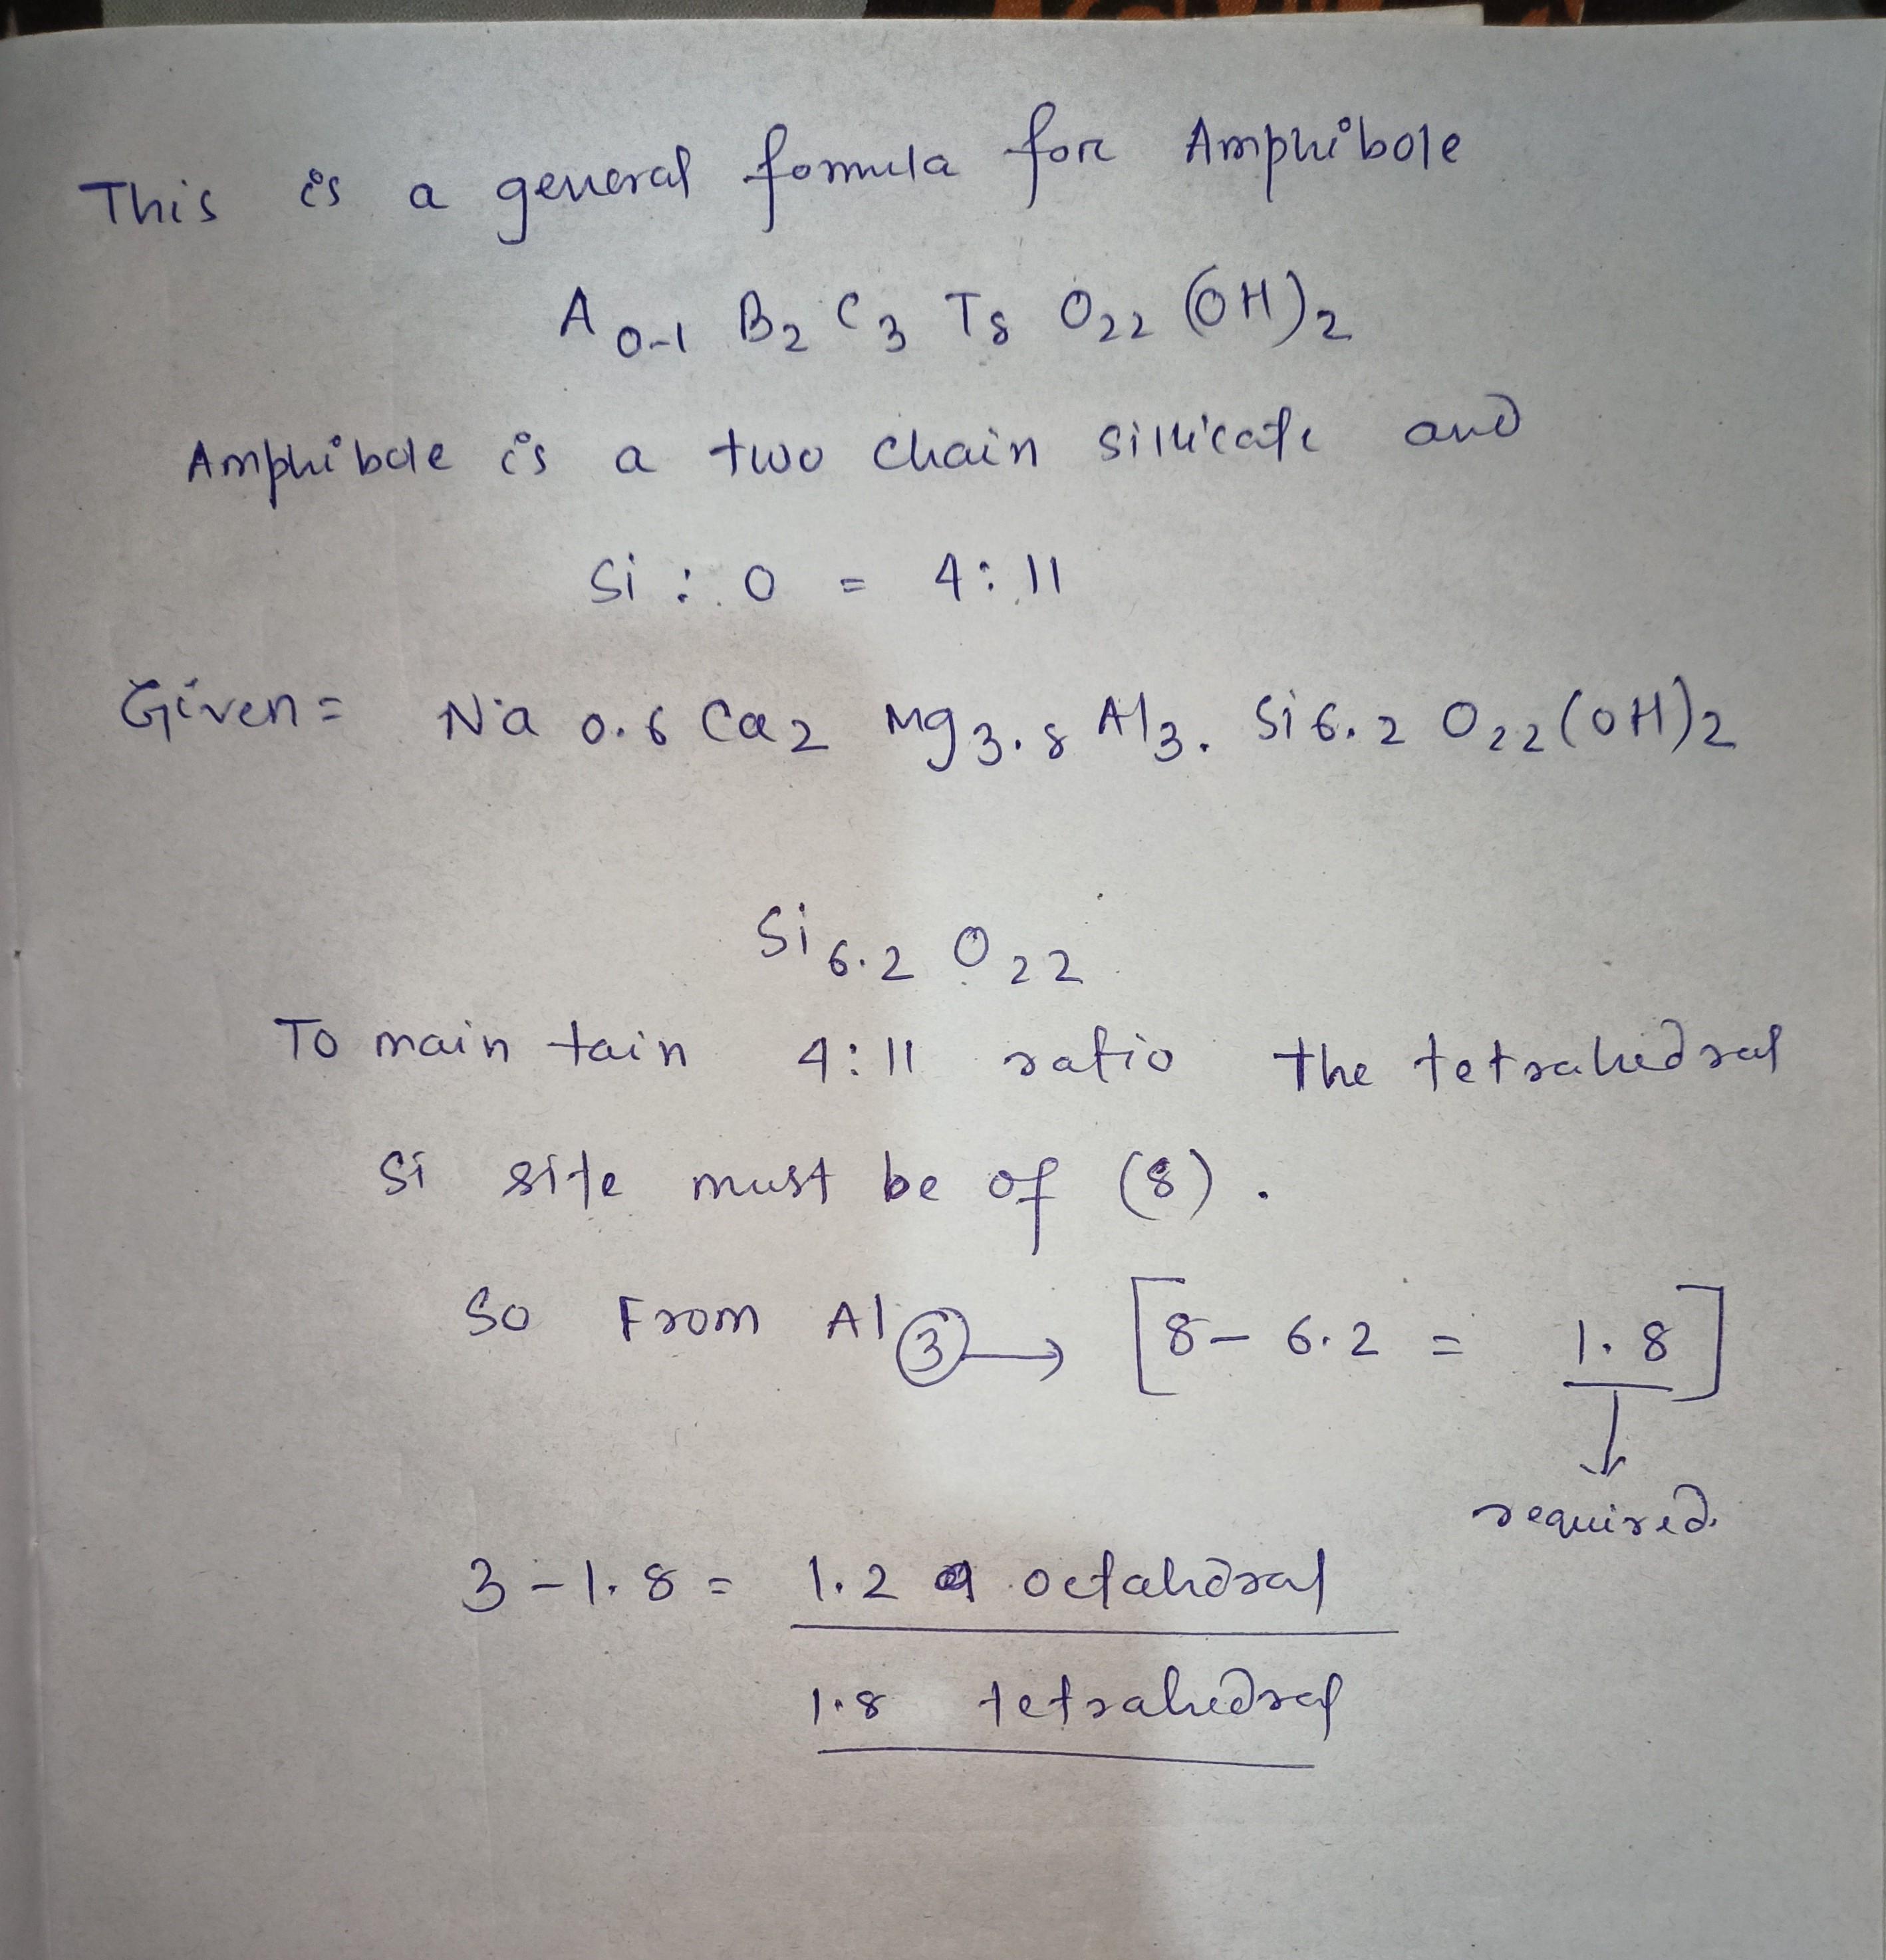 This is a general fomula for Amphibole
A₀₋₁ B₂ C₃ T₈ O₂₂ (OH)₂
Amphibole is a two chain sillicate and
Si : O = 4:11
Given = Na 0.6 Ca₂ Mg₃.₈ Al₃. Si₆.₂ O₂₂(OH)₂
Si₆.₂ O₂₂
To main tain 4:11 ratio the tetrahedral
Si site must be of (8).
So From Al ③ → [8 - 6.2 = 1.8]
required.
3 - 1.8 = 1.2 octahdral
1.8 tetrahedral